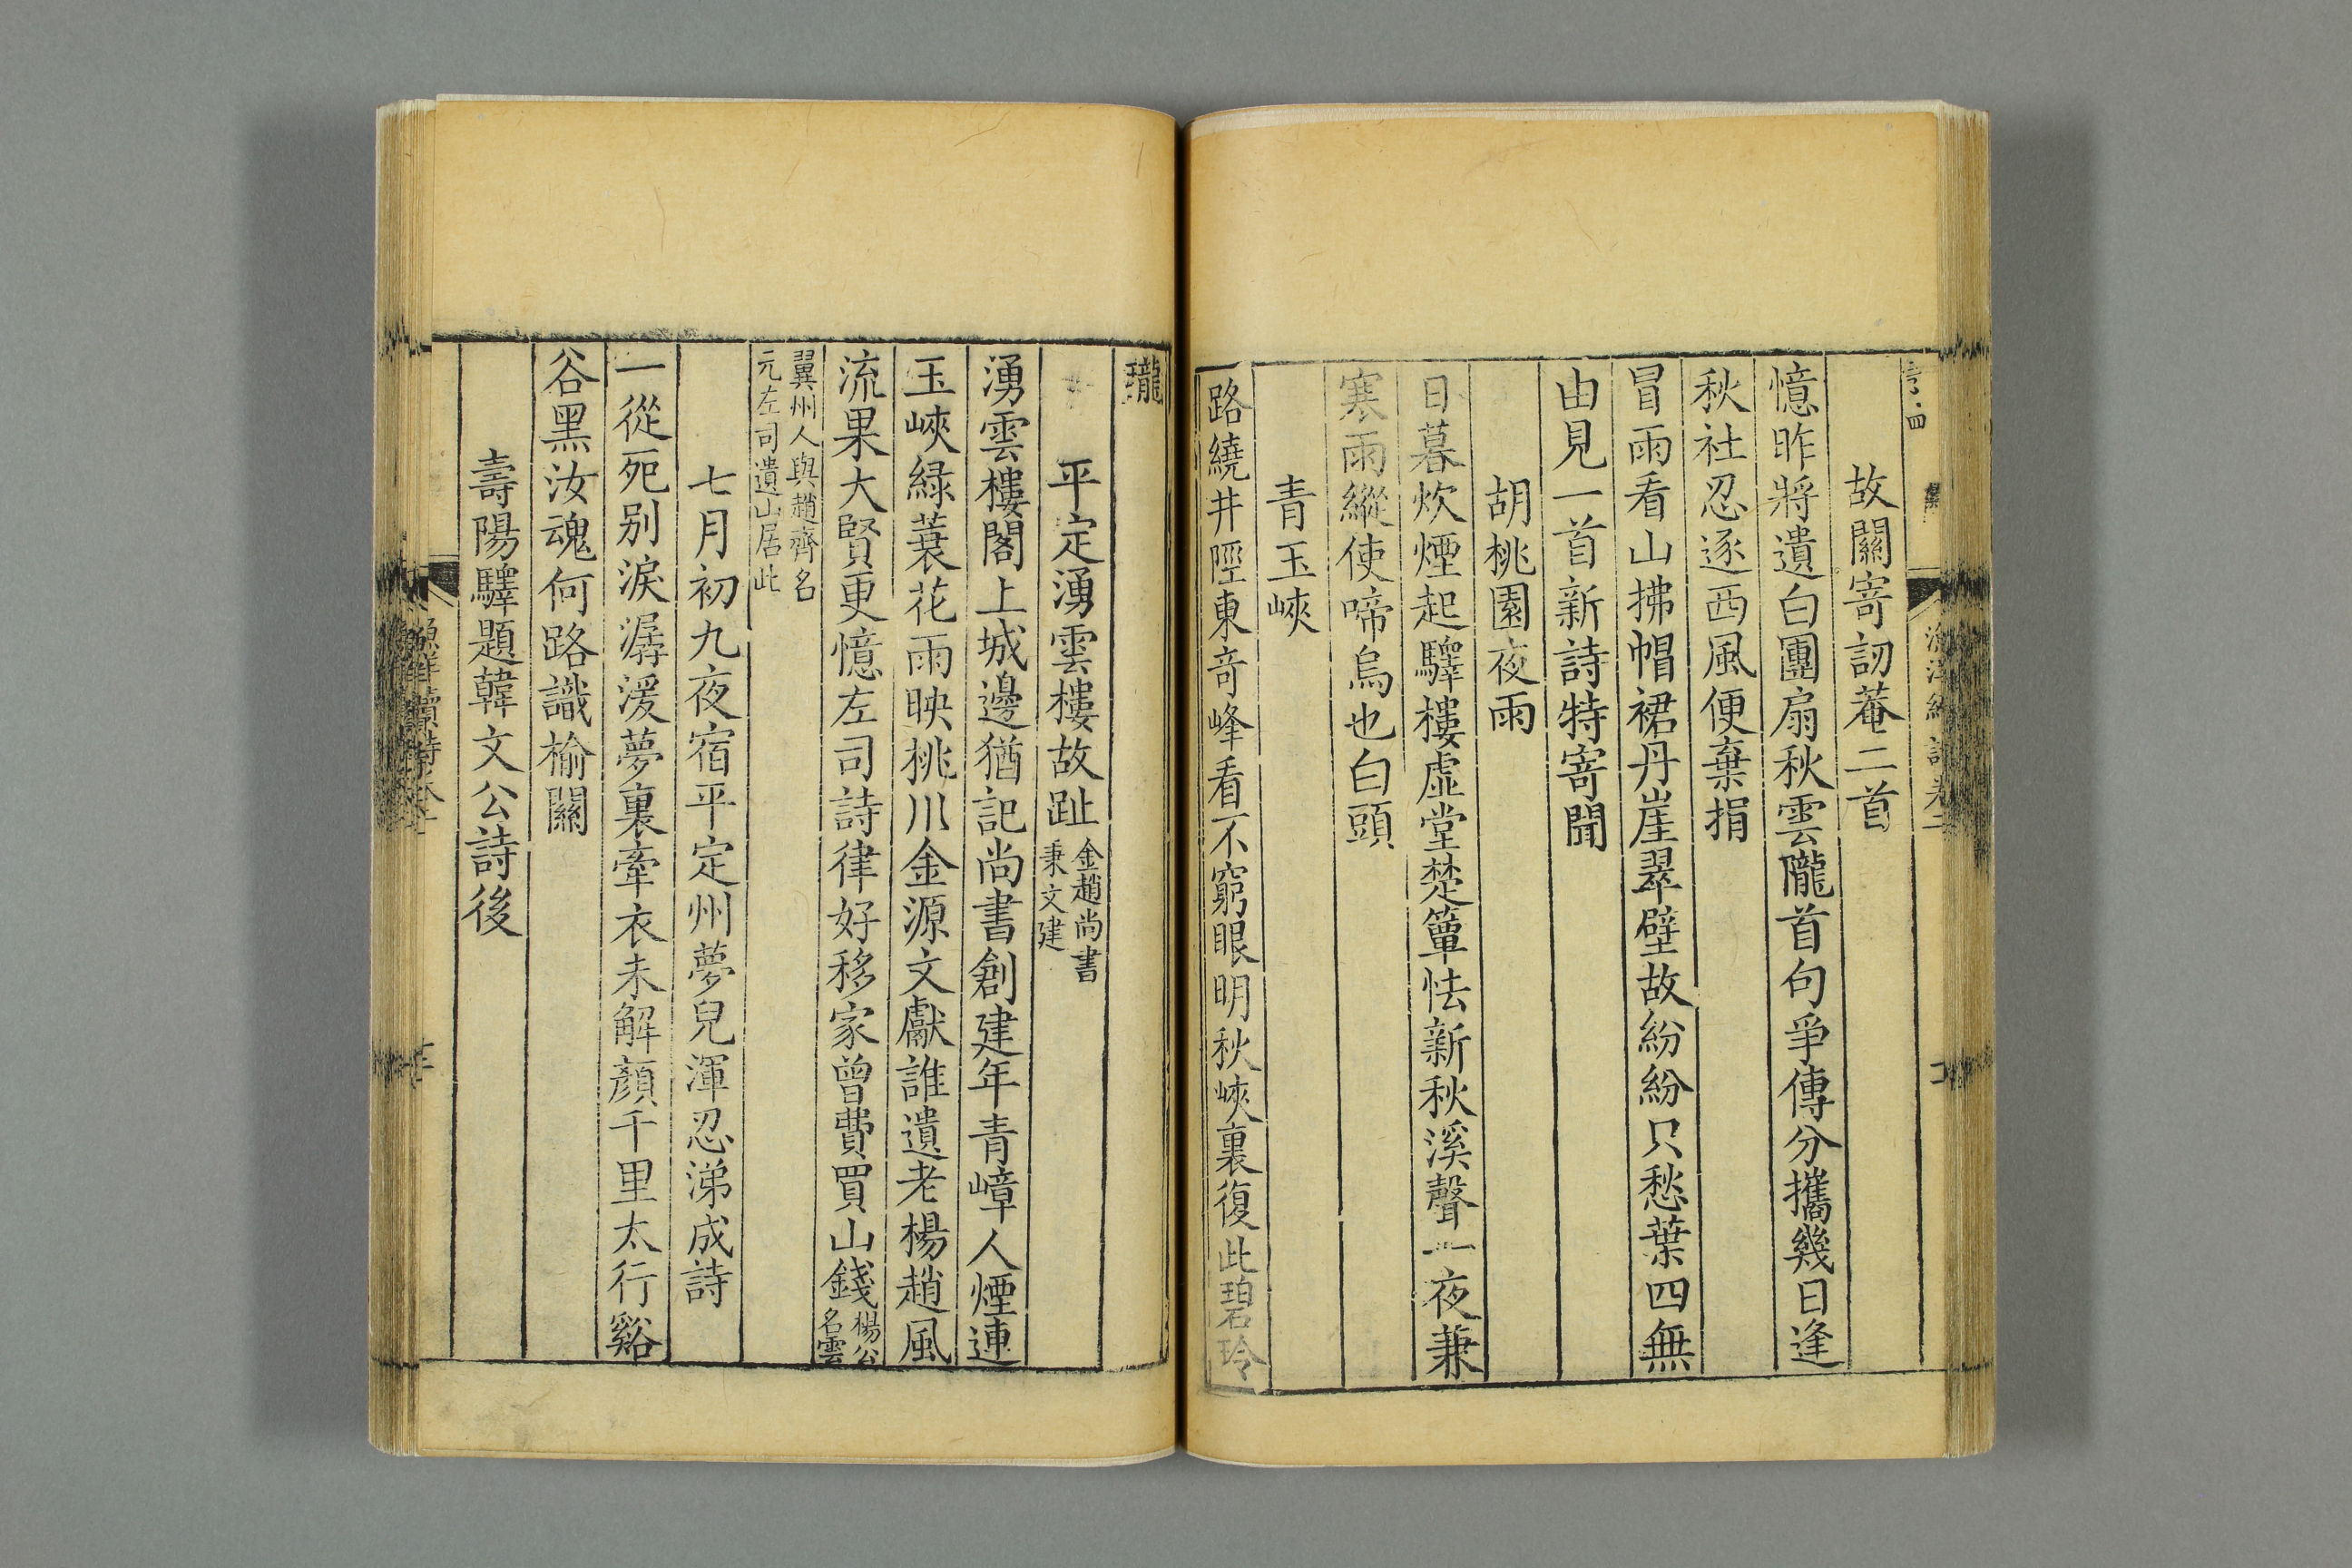 故關寄訒菴二首
憶昨將遺白團扇秋雲隴首句爭傳分攜幾日逢
秋社忍逐西風便棄捐
冒雨看山拂帽裙丹崖翠壁故紛紛只愁葉四無
由見一首新詩特寄聞
胡桃園夜雨
日暮炊煙起驛樓虛堂楚簟怯新秋溪聲一夜兼
寒雨縱使啼烏也白頭
青玉峽
路繞井陘東奇峰看不窮眼明秋峽裏復此碧玲
瓏
平定湧雲樓故趾金趙尚書秉文建
湧雲樓閣上城邊猶記尚書創建年青嶂人煙連
玉峽綠蓑花雨映桃川金源文獻誰遺老楊趙風
流果大賢更憶左司詩律好移家曾費買山錢楊公名雲
翼州人與趙齊名元左司遺山居此
七月初九夜宿平定州夢兒渾忍涕成詩
一從死別淚潺湲夢裏牽衣未解顏千里太行谿
谷黑汝魂何路識榆關
壽陽驛題韓文公詩後
漁洋續詩卷